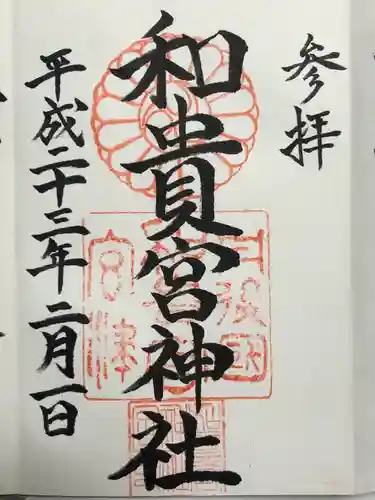 参拝
和貴宮神社
平成二十三年二月一日